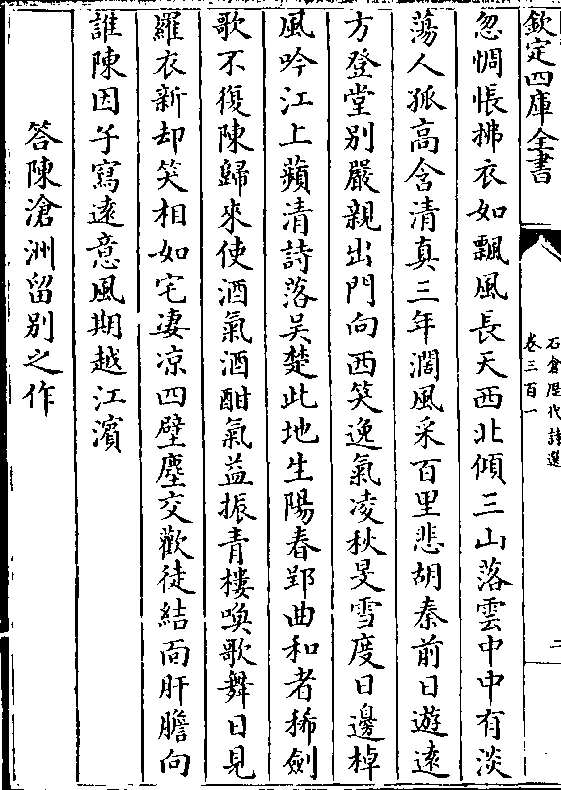 欽定四庫全書
石倉歷代詩選
卷三百一
二
忽惆悵拂衣如飄風長天西北傾三山落雲中中有淡
蕩人孤高含清真三年濶風采百里悲胡秦前日遊遠
方登堂别嚴親出門向西笑逸氣凌秋旻雪度日邊棹
風吟江上蘋清詩落吴楚此地生陽春郢曲和者稀劍
歌不復陳歸來使酒氣酒酣氣益振青樓喚歌舞日見
羅衣新却笑相如宅凄凉四壁塵交歡徒結面肝膽向
誰陳因子寫遠意風期越江濱
答陳滄洲留别之作